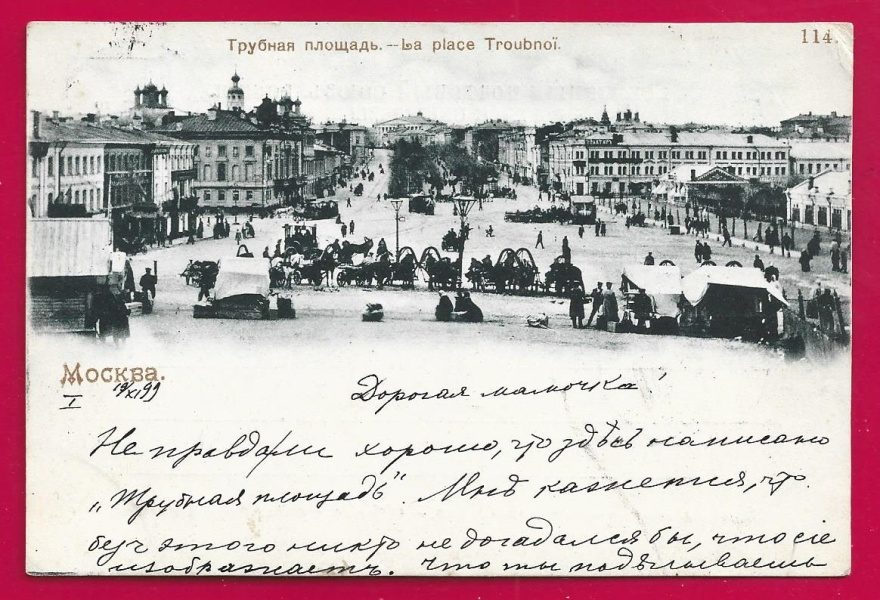 Трубная площадь. — La place Troubnoï.
114.
Москва.
I 19/XI 99
Дорогая мамочка!
Не правда ли хорошо, что здѣсь написано
„Трубная площадь". Мнѣ кажется, что
безъ этого никто не догадался бы, что сіе
изображаетъ. Что ты подѣлываешь